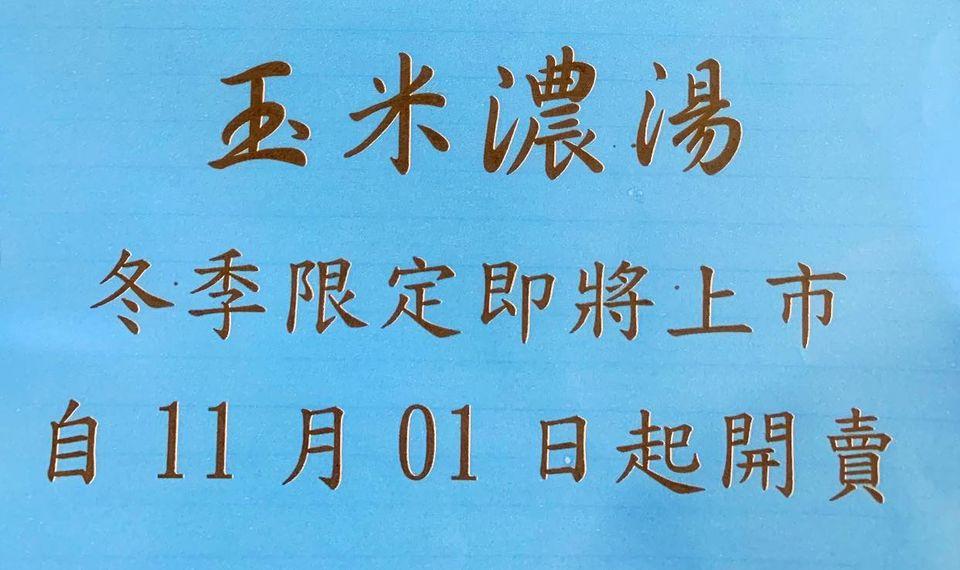 玉米濃湯
冬季限定即將上市
自 11 月 01 日起開賣